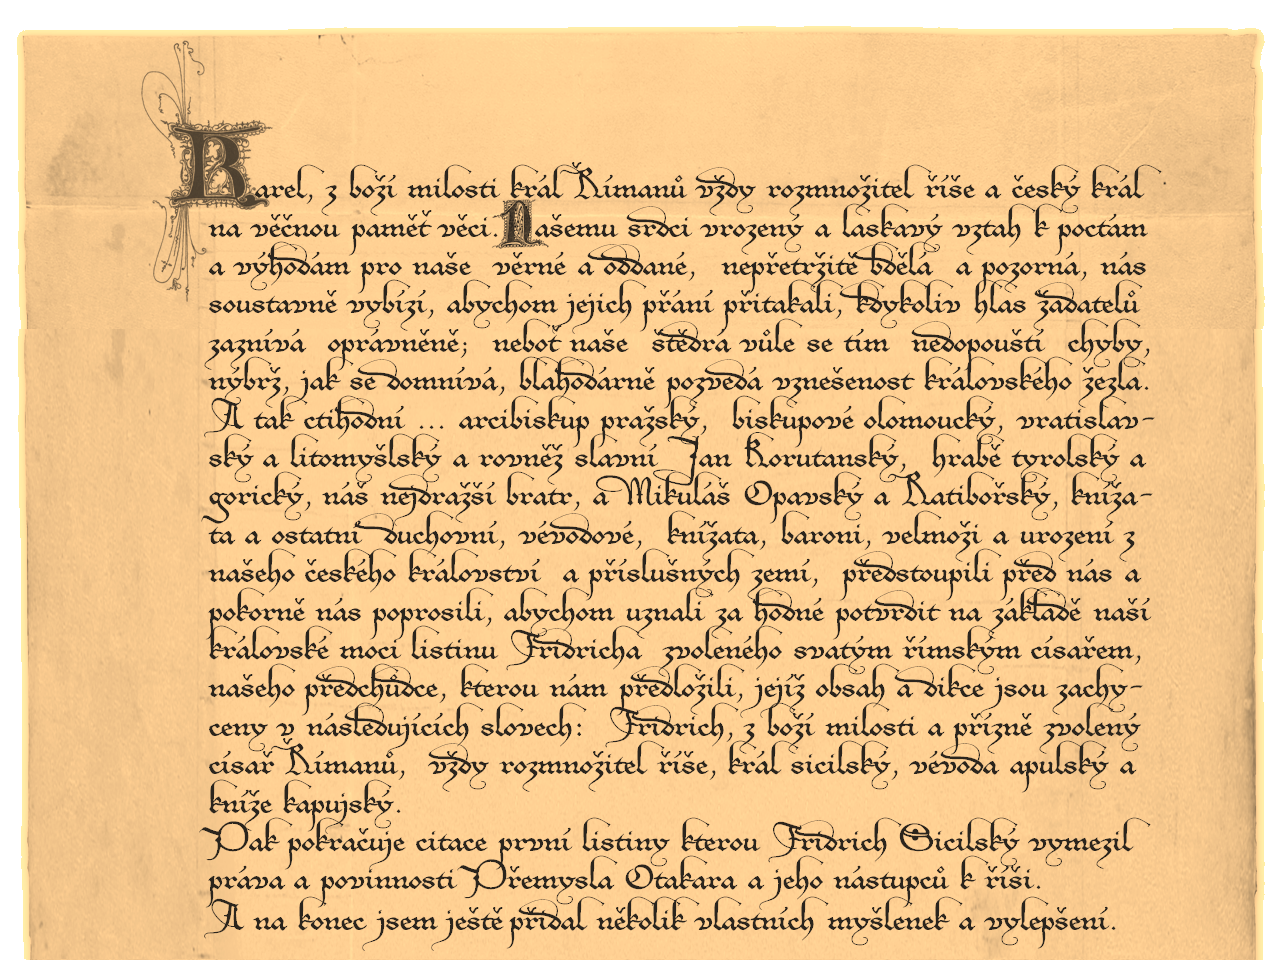 Karel, z boží milosti král Římanů vždy rozmnožitel říše a český král
na věčnou paměť věci. Našemu srdci vrozený a laskavý vztah k poctám
a výhodám pro naše věrné a oddané, nepřetržitě bdělá a pozorná, nás
soustavně vybízí, abychom jejich přání přitakali, kdykoliv hlas žadatelů
zaznívá oprávněně; neboť naše štědrá vůle se tím nedopouští chyby,
nýbrž, jak se domnívá, blahodárně pozvedá vznešenost královského žezla.
A tak ctihodní ... arcibiskup pražský, biskupové olomoucký, vratislav-
ský a litomyšlský a rovněž slavní Jan Korutanský, hrabě tyrolský a
gorický, náš nejdražší bratr, a Mikuláš Opavský a Ratibořský, kníža-
ta a ostatní duchovní, vévodové, knížata, baroni, velmoži a urození z
našeho českého království a příslušných zemí, předstoupili před nás a
pokorně nás poprosili, abychom uznali za hodné potvrdit na základě naší
královské moci listinu Fridricha zvoleného svatým římským císařem,
našeho předchůdce, kterou nám předložili, jejíž obsah a dikce jsou zachy-
ceny v následujících slovech: Fridrich, z boží milosti a přízně zvolený
císař Římanů, vždy rozmnožitel říše, král sicilský, vévoda apulský a
kníže kapujský.
Pak pokračuje citace první listiny kterou Fridrich Sicilský vymezil
práva a povinnosti Přemysla Otakara a jeho nástupců k říši.
A na konec jsem ještě přidal několik vlastních myšlenek a vylepšení.